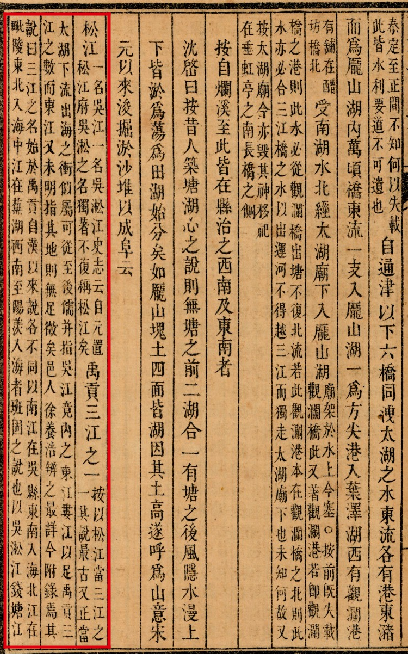 泰定至正間不知何以失載
此皆水利要道不可遺也
自通津以下六橋同洩太湖之水東流各有港東瀦
而為龐山湖內萬頃橋東流一支入龐山湖一為方尖港入葉澤湖西有觀瀾港
舊鋪在醋
坊橋北
受南湖水北經太湖廟下入龐山湖
廟架於水上今塞○按前既失載
觀瀾橋此又者觀瀾港若卽觀瀾
橋之港則此水必從觀瀾橋出塘不復北流若此觀瀾港本在觀瀾橋之北則此
水亦必合三江橋之水以出運河不得越三江而獨走太湖廟下也未知何故又
按太湖廟今亦毀其神移祀
在垂虹亭之南長橋之側
按自爛溪至此皆在縣治之西南及東南者
沈啓曰按昔人築塘湖心之說則無塘之前二湖合一有塘之後風隱水漫上
下皆淤為蕩為田湖始分矣如龐山塊土四面皆湖因其土高遂呼為山意宋
元以來浚掘淤沙堆以成阜云
松江
一名吳江一名吳淞江史志云自元置
松江府吳淞之名獨著不復稱松江矣
禹貢三江之一
按以松江當三江之
一其說最古又正當
太湖下流出海之衝似屬可從至後儒并指吳江竟內之東江婁江以足禹貢三
江之數而東江又未明指其地則無足徵矣邑人徐養浩辨之最詳今附錄焉其
說曰三江之名始於禹貢自漢以來說各不同以南江在吳縣東南入海北江在
毗陵東北入海中江在蕪湖西南至陽羨入海者班固之說也以吳淞江錢塘江